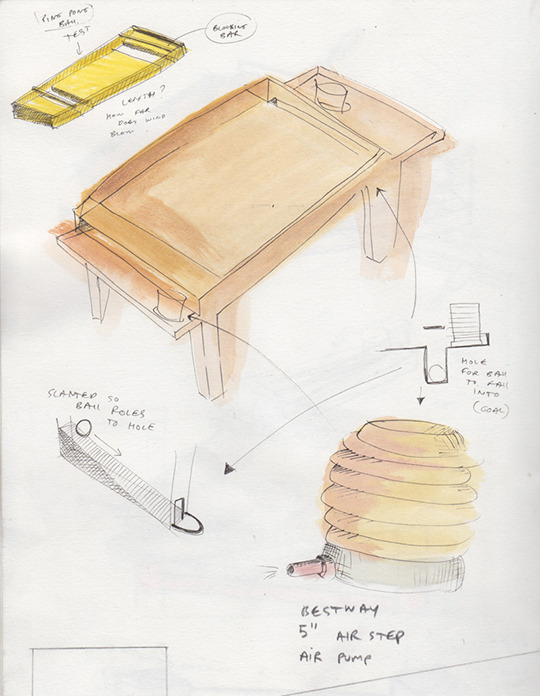 (PING PONG)
BALL
TEST
BLOCKING
BAR
LENGTH?
HOW FAR
DOES WIND
BLOW.
HOLE
FOR BALL
TO FALL
INTO
(GOAL)
SLANTED SO
BALL ROLES
TO HOLE
BESTWAY
5" AIR STEP
AIR PUMP